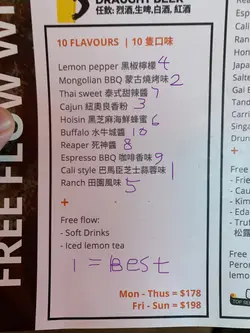 DRAUGHT BEER
任飲: 烈酒,生啤,白酒,紅酒
10 FLAVOURS | 10 隻口味
Lemon pepper 黑椒檸檬 4
Mongolian BBQ 蒙古燒烤味 2
Thai sweet 泰式甜辣醬 7
Cajun 紐奧良香粉 3
Hoisin 黑芝麻海鮮蜂蜜 6
Buffalo 水牛城醬 10
Reaper 死神醬 8
Espresso BBQ 咖啡香味 9
Cali style 巴馬臣芝士蒜蓉味 1
Ranch 田園風味 5
+
Free flow:
- Soft Drinks
- Iced lemon tea
1 = Best
Mon - Thus = $178
Fri - Sun = $198
FREE FLOW
+
Free
- Frie
- Cau
- Kim
- Eda
- Truf
松露
Free
Pero
lemo